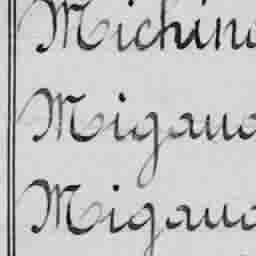 Michino
Migauo
Migauo